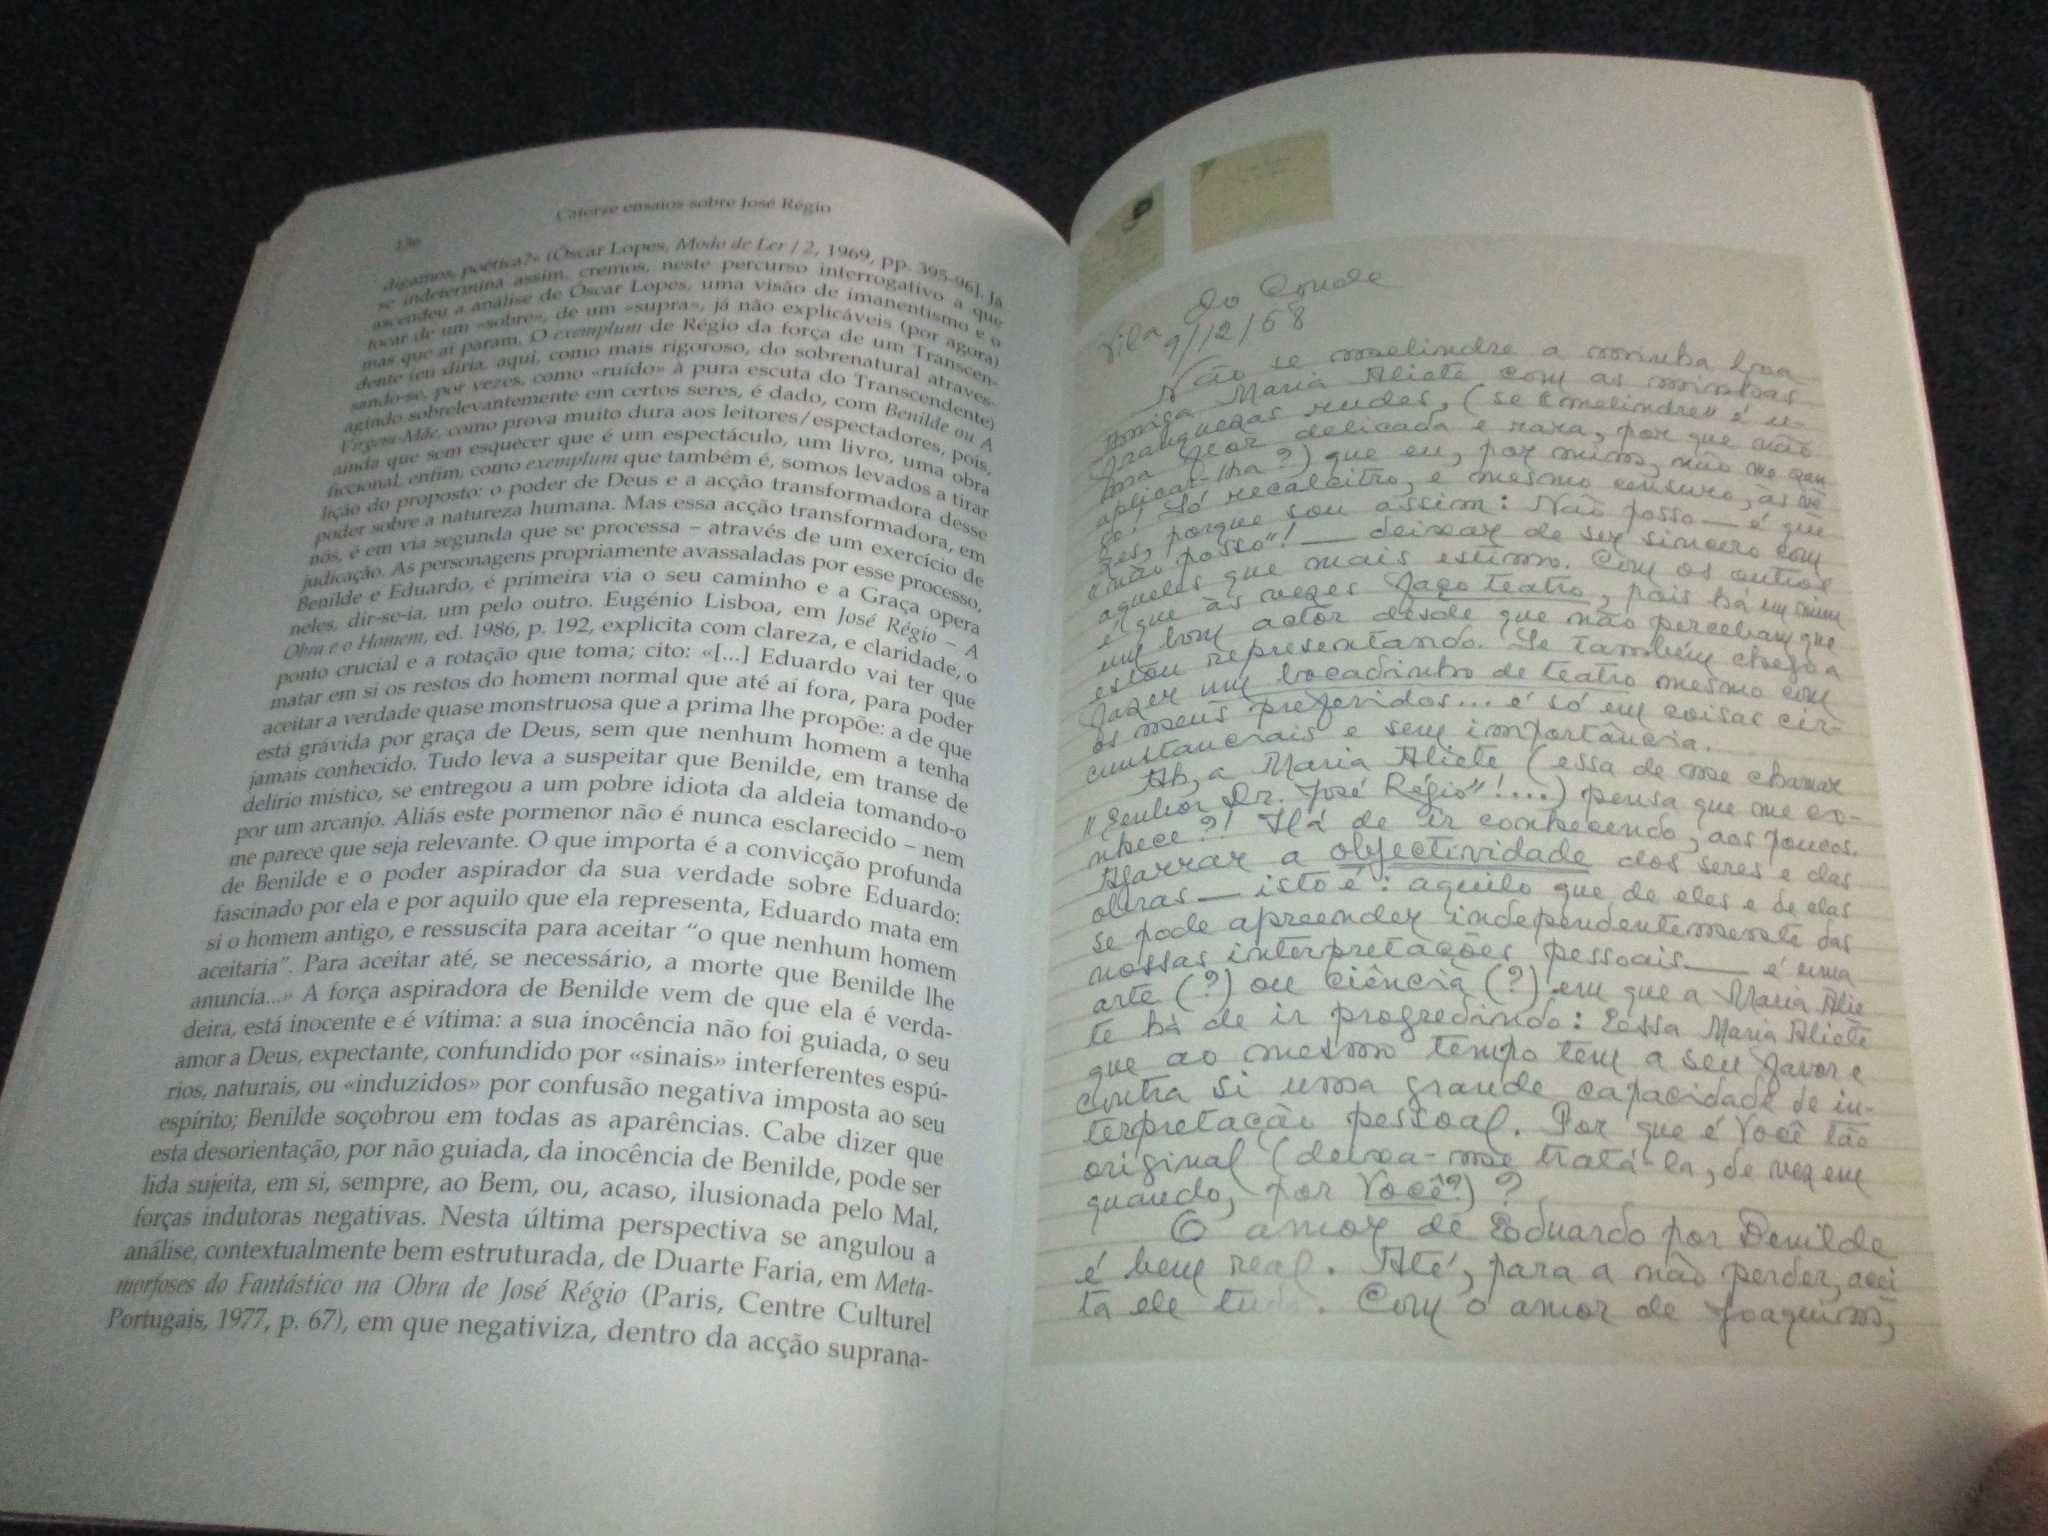 Catorze ensaios sobre José Régio
digamos, poética?» (Óscar Lopes, Modo de Ler / 2, 1969, pp. 395-96]. Já
se indetermina assim, cremos, neste percurso interrogativo a que
ascendeu a análise de Óscar Lopes, uma visão de imanentismo e o
tocar de um «sobre», de um «supra», já não explicáveis (por agora)
mas que aí param. O exemplum de Régio da força de um Transcen-
dente (eu diria, aqui, como mais rigoroso, do sobrenatural atraves-
sando-se, por vezes, como «ruído» à pura escuta do Transcendente)
agindo sobrelevantemente em certos seres, é dado, com Benilde ou A
Virgem-Mãe, como prova muito dura aos leitores/espectadores, pois,
ainda que sem esquecer que é um espectáculo, um livro, uma obra
ficcional, enfim, como exemplum que também é, somos levados a tirar
lição do proposto: o poder de Deus e a acção transformadora desse
poder sobre a natureza humana. Mas essa acção transformadora, em
nós, é em via segunda que se processa – através de um exercício de
judicação. As personagens propriamente avassaladas por esse processo,
Benilde e Eduardo, é primeira via o seu caminho e a Graça opera
neles, dir-se-ia, um pelo outro. Eugénio Lisboa, em José Régio – A
Obra e o Homem, ed. 1986, p. 192, explicita com clareza, e claridade, o
ponto crucial e a rotação que toma; cito: «[...] Eduardo vai ter que
matar em si os restos do homem normal que até aí fora, para poder
aceitar a verdade quase monstruosa que a prima lhe propõe: a de que
está grávida por graça de Deus, sem que nenhum homem a tenha
jamais conhecido. Tudo leva a suspeitar que Benilde, em transe de
delírio místico, se entregou a um pobre idiota da aldeia tomando-o
por um arcanjo. Aliás este pormenor não é nunca esclarecido – nem
me parece que seja relevante. O que importa é a convicção profunda
de Benilde e o poder aspirador da sua verdade sobre Eduardo:
fascinado por ela e por aquilo que ela representa, Eduardo mata em
si o homem antigo, e ressuscita para aceitar “o que nenhum homem
aceitaria”. Para aceitar até, se necessário, a morte que Benilde lhe
anuncia...» A força aspiradora de Benilde vem de que ela é verda-
deira, está inocente e é vítima: a sua inocência não foi guiada, o seu
amor a Deus, expectante, confundido por «sinais» interferentes espú-
rios, naturais, ou «induzidos» por confusão negativa imposta ao seu
espírito; Benilde soçobrou em todas as aparências. Cabe dizer que
esta desorientação, por não guiada, da inocência de Benilde, pode ser
lida sujeita, em si, sempre, ao Bem, ou, acaso, ilusionada pelo Mal,
forças indutoras negativas. Nesta última perspectiva se angulou a
análise, contextualmente bem estruturada, de Duarte Faria, em Meta-
morfoses do Fantástico na Obra de José Régio (Paris, Centre Culturel
Portugais, 1977, p. 67), em que negativiza, dentro da acção suprana-
Vila do Conde
9/12/68
Não se melindre a minha boa
Amiga Maria Aliete com as minhas
franquezas rudes, (se "melindre" é u-
ma flor delicada e rara, por que não
aplicar-lha?) que eu, por mim, não me zan-
go! Só recalcitro, e mesmo censuro, às ve-
zes, porque sou assim: Não posso — é que
"não posso"! — deixar de ser sincero com
aqueles que mais estimo. Com os outros
é que às vezes faço teatro, pois há em mim
um bom actor desde que não percebam que
estou representando. Se também chego a
fazer um bocadinho de teatro mesmo com
os meus preferidos... é só em coisas cir-
cunstanciais e sem importância.
Ah, a Maria Aliete (essa de me chamar
"Senhor Dr. José Régio"!...) pensa que me co-
nhece?! Há de ir conhecendo, aos poucos.
Agarrar a objectividade dos seres e das
obras — isto é: aquilo que de eles e de elas
se pode apreender independentemente das
nossas interpretações pessoais — é uma
arte (?) ou ciência (?) em que a Maria Alie
te há de ir progredindo: Essa Maria Aliete
que ao mesmo tempo tem a seu favor e
contra si uma grande capacidade de in-
terpretação pessoal. Por que é Você tão
original (deixa-me tratá-la, de vez em
quando, por Você?) ?
O amor de Eduardo por Benilde
é bem real. Até, para a não perder, acei
ta ele tudo. Com o amor de Joaquim,